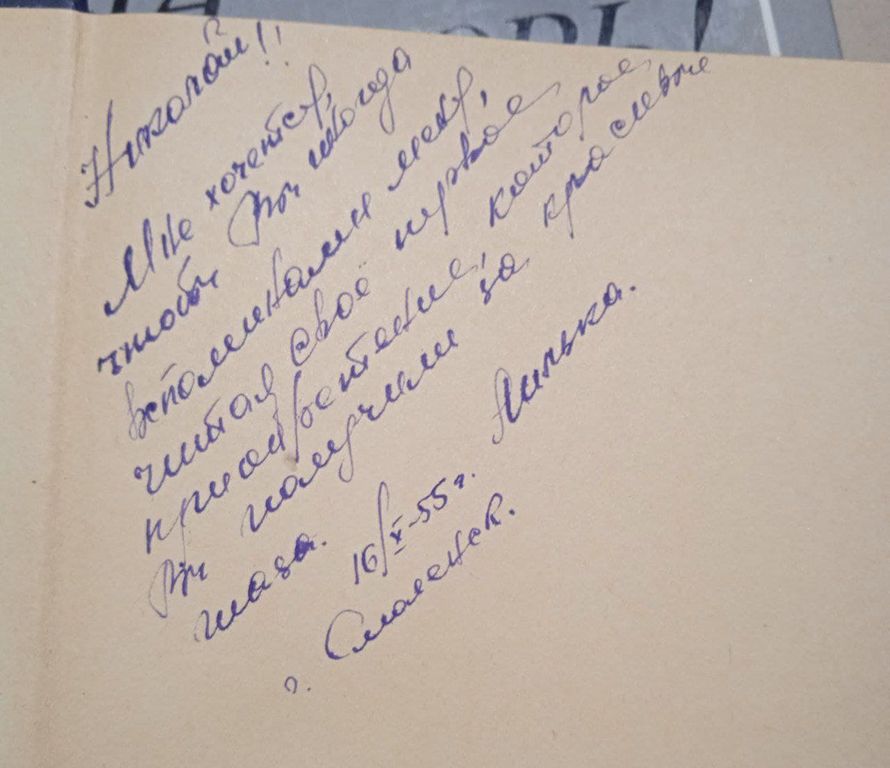 Николай!!
Мне хочется,
чтобы Вы иногда
вспоминали меня,
читая своё первое
приобретение, которое
Вы получили за красивые
глаза.
16/X-55г. Лилька.
г. Смоленск.